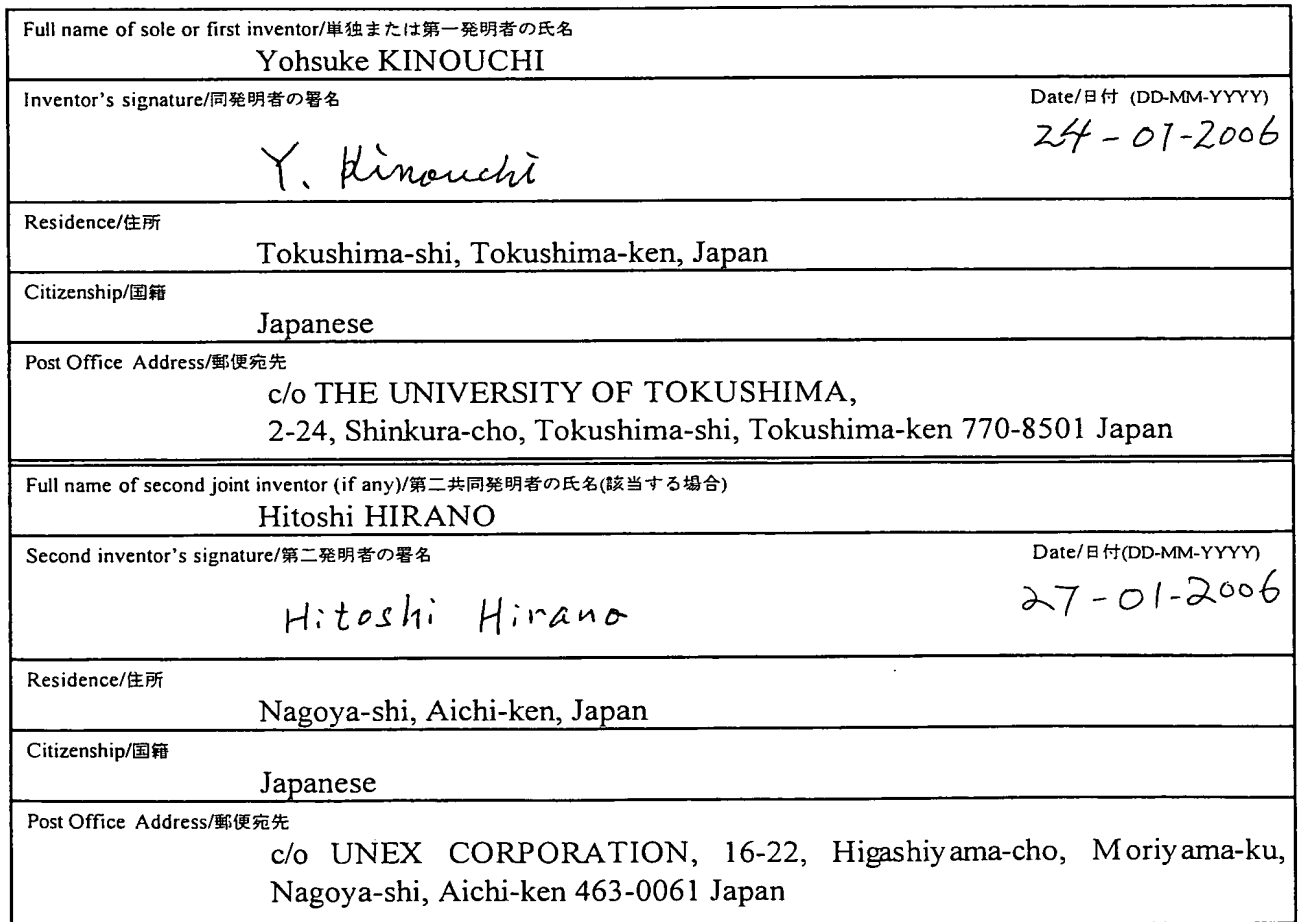 Full name of sole or first inventor/単独または第一発明者の氏名
Yohsuke KINOUCHI
Inventor's signature/同発明者の署名
Date/日付 (DD-MM-YYYY)
Y. Kinouchi
24-01-2006
Residence/住所
Tokushima-shi, Tokushima-ken, Japan
Citizenship/国籍
Japanese
Post Office Address/郵便宛先
c/o THE UNIVERSITY OF TOKUSHIMA,
2-24, Shinkura-cho, Tokushima-shi, Tokushima-ken 770-8501 Japan
Full name of second joint inventor (if any)/第二共同発明者の氏名(該当する場合)
Hitoshi HIRANO
Second inventor's signature/第二発明者の署名
Date/日付(DD-MM-YYYY)
Hitoshi Hirano
27-01-2006
Residence/住所
Nagoya-shi, Aichi-ken, Japan
Citizenship/国籍
Japanese
Post Office Address/郵便宛先
c/o UNEX CORPORATION, 16-22, Higashiyama-cho, Moriyama-ku,
Nagoya-shi, Aichi-ken 463-0061 Japan